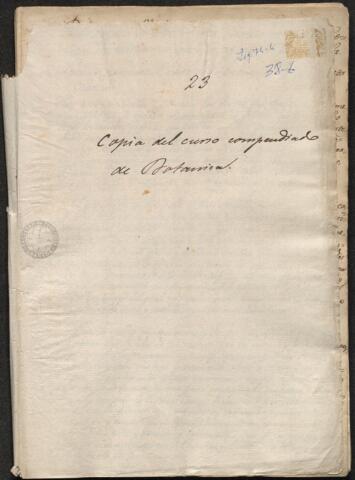 38-6
23
Copia del curso compendiado
de Botanica.